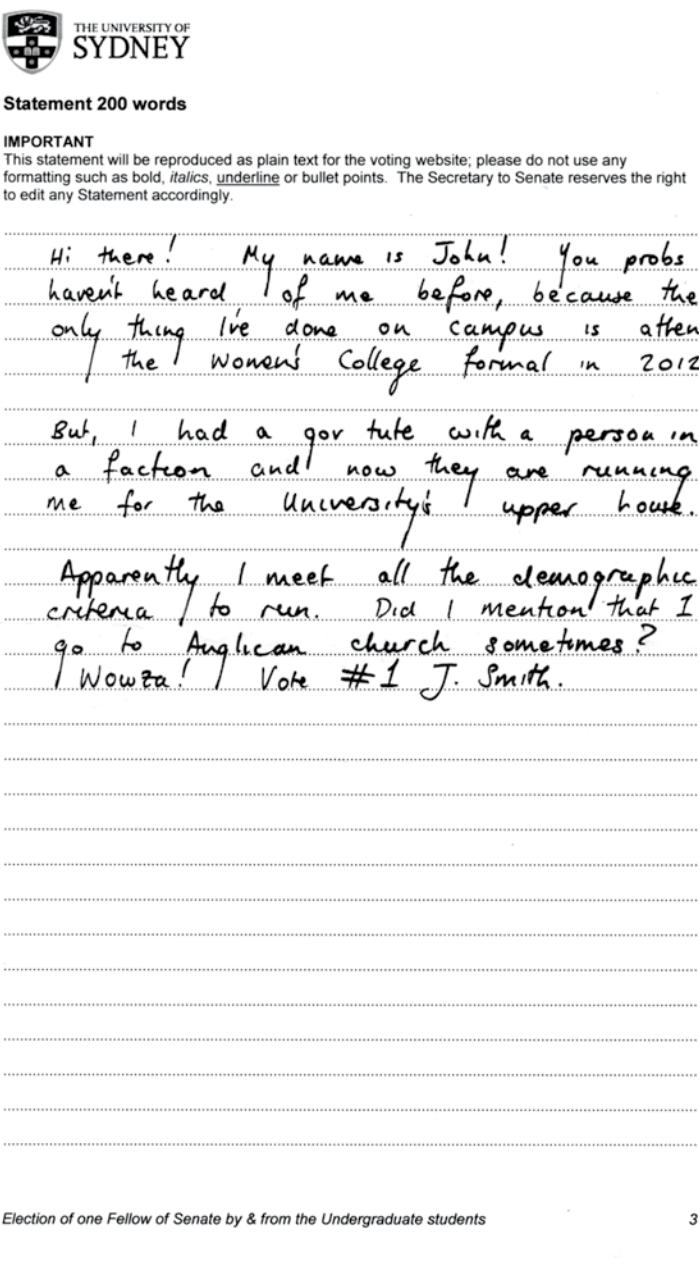 THE UNIVERSITY OF
SYDNEY
Statement 200 words
IMPORTANT
This statement will be reproduced as plain text for the voting website; please do not use any
formatting such as bold, italics, underline or bullet points. The Secretary to Senate reserves the right
to edit any Statement accordingly.
Hi there! My name is John! You probs
haven't heard of me before, because the
only thing I've done on campus is atten
the Women's College formal in 2012
But, I had a gov tute with a person in
a faction and now they are running
me for the University's upper house.
Apparently I meet all the demographic
criteria to run. Did I mention that I
go to Anglican church sometimes?
Wowza! Vote #1 J. Smith.
Election of one Fellow of Senate by & from the Undergraduate students 3